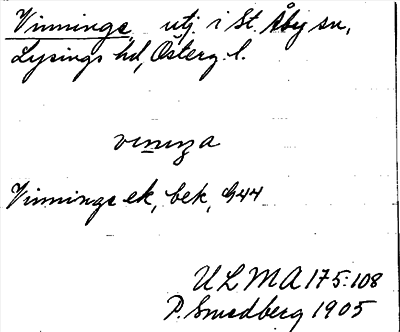 Vinninge, utj. i St. Åby sn,
Lysings hd, Österg. l.
Vinninge ek, bek, G44
ULMA 175:108
P. Smedberg 1905